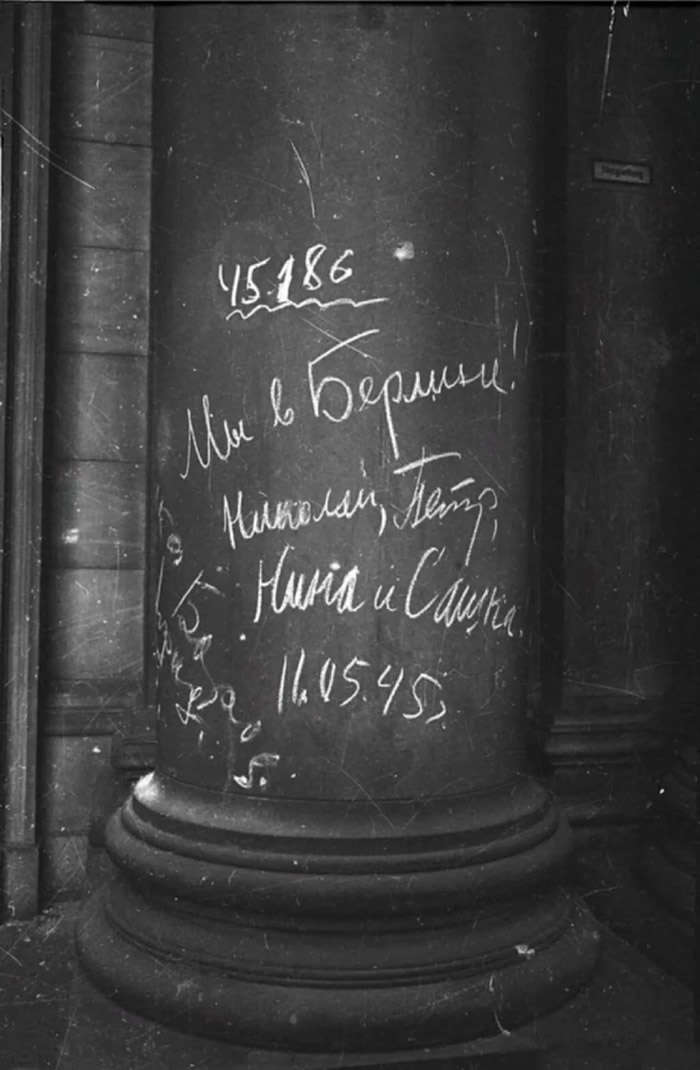 45186
Мы в Берлине!
Николай, Петр,
Нина и Сашка.
11.05.45г